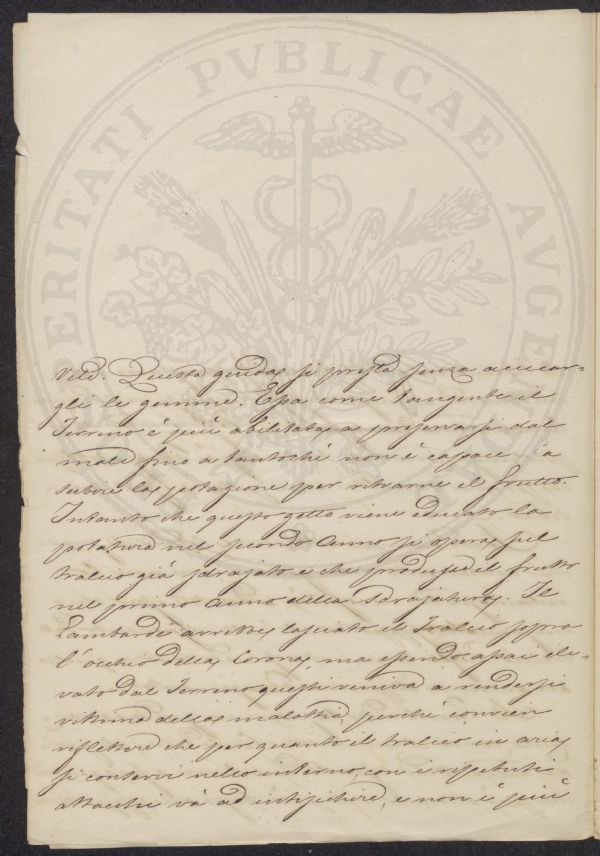 PROSPERITATI PVBLICAE AVGENDAE
vite. Questa guida si presta senza accecar-
gli le gemme. Essa come tangente il
Terreno è più abilitata a preservarsi dal
male fino a tantoché non è capace a
subire la potagione per ritrarne il frutto.
Intanto che questo getto viene educato la
potatura nel secondo Anno si opera sul
tralcio già sdrajato e che produsse il frutto
nel primo Anno della Sdrajatura. Il
Lambardi avrebbe lasciato il Tralcio sopra
l'occhio della Corona, ma essendo assai ele-
vato dal Terreno questi veniva a rendersi
vittima della malattia, perché convien
riflettere che per quanto il tralcio in aria
si conservi nello interno, con i ripetuti
attacchi và ad intisichire, e non è più